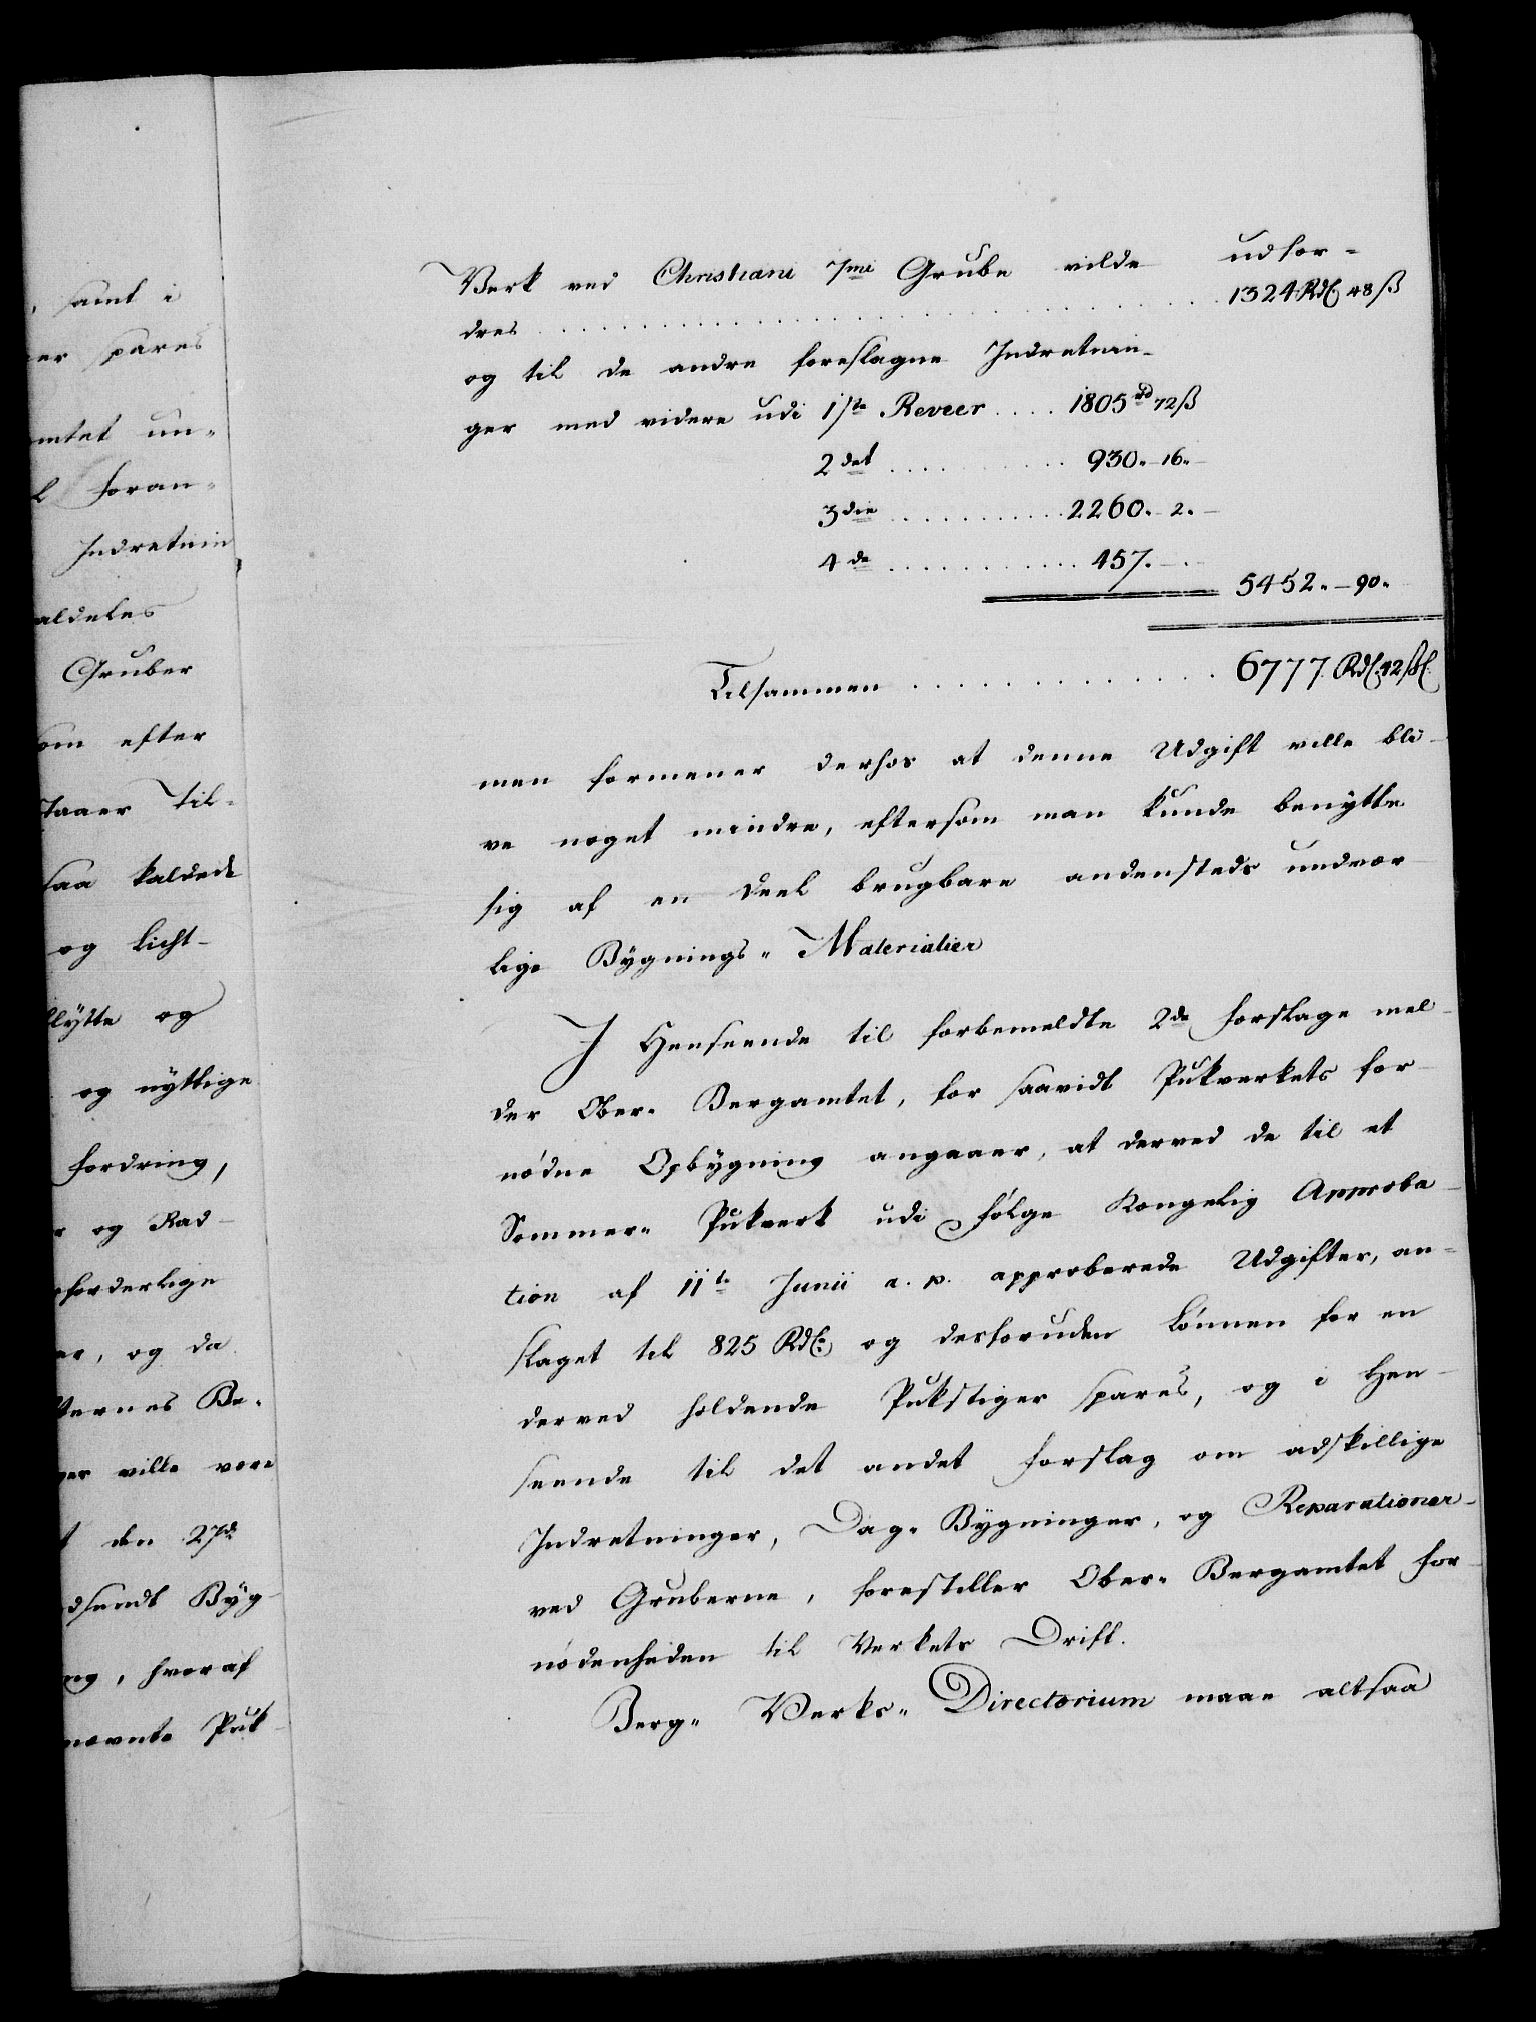 , samt i
er spares
mtet un=
l foran=
Indretnin
aldeles
Gruber
om efter
Taaer Til=
saa kaldede
og Licht-
lÿtte og
og nÿttige
fordring,
r og Rad-
forderlige
er, og da
ternes Be=
er ville være
t den 27de
dsendt Bÿg-
ng, hvoraf
nævnte Puk-
Verk ved Christiani 7mi Grube vilde udfor=
dres . . . . . . . . . . 1324 Rdl. 48 ß
og til de andre foreslagne Indretnin-
ger med videre udi 1ste Reveer . . . . 1805 rd 72 ß
2det . . . . . . . . . . 930. - 16. -
3die . . . . . . . . . . 2260. - 2. -
4de . . . . . . . . . . 457. - .
5452. - 90.
Tilsammen . . . . . . . . . . 6777 Rdl. 42 ßl.
men formener derhos at denne Udgift ville bli-
ve noget mindre, eftersom man kunde benÿtte
sig af en Deel brugbare andensteds undvær-
lige Bÿgnings= Materialier
I Henseende til forbemeldte 2de Forslage mel-
der Ober= Bergamtet, for saavidt Pukverkets for-
nødne Opbÿgning angaaer, at derved de til et
Sommer= Pukverk udi Følge Kongelig Approba-
tion af 11te Junii a. p. approberede Udgifter, an=
slaget til 825 Rdl. og desforuden Lønnen for en
derved holdende Pukstiger spares, og i Hen-
seende til det andet Forslag om adskillige
Indretninger, Dag= Bÿgninger, og Reparationer-
ved Gruberne, forestiller Ober= Bergamtet For-
nødenheden til Verkets Drift.
Berg= Verks= Directorium maae altsaa